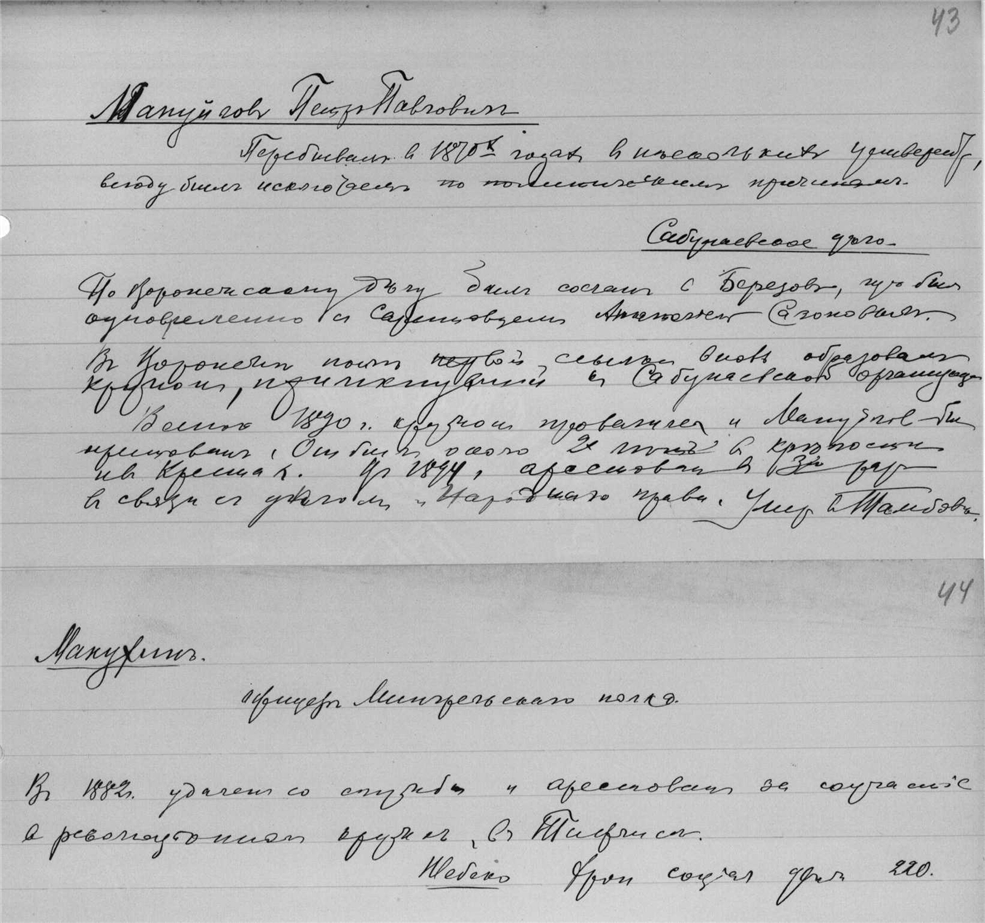 43
Мануйловъ Петръ Павловичъ
Перебывалъ въ 1870х годахъ въ нѣсколькихъ университ,
всюду былъ исключаемъ по политическимъ причинамъ.
Сабунаевское дѣло.
По Воронежскому дѣлу былъ сосланъ в Березовъ, гдѣ былъ
одновременно съ Саратовцемъ Сазоновымъ.
Въ Воронежѣ послѣ первой ссылки вновь образовалъ
кружокъ, примкнувшій къ Сабунаевской организаціи
Весною 1890 г. кружокъ провалился и Мануйловъ был
арестованъ. Отбылъ около 2х лѣтъ въ крѣпости
и въ Крестахъ. 1894 г. арестованъ въ 3й разъ
въ связи съ дѣломъ "Народнаго права". Умеръ въ Тамбовѣ.
44
Манухинъ.
офицеръ Мингрельскаго полка.
Въ 1882 г. удаленъ со службы и арестованъ за соучастіе
въ революціонномъ кружкѣ въ Тифлисѣ.
Шебеко Хрон соціал движ 220.